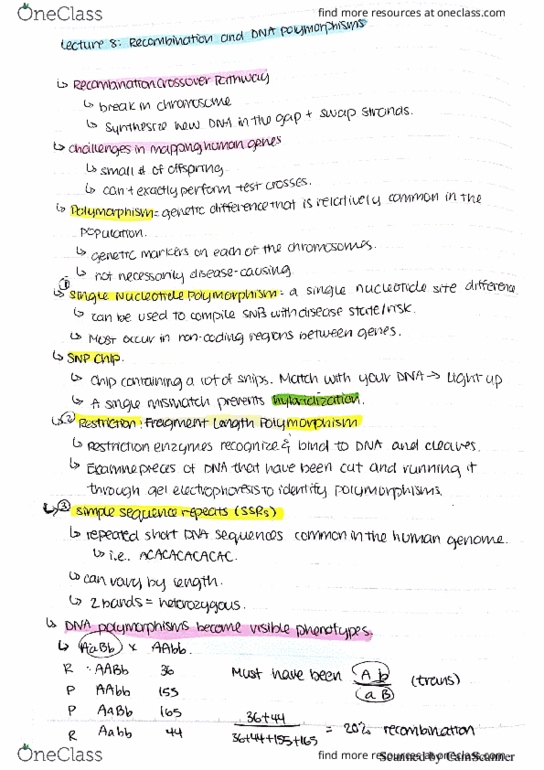 OneClass
find more resources at oneclass.com
Lecture 8: Recombination and DNA Polymorphisms
↳ Recombination Crossover Pathway
↳ break in chromosome
↳ synthesize new DNA in the gap + swap strands.
↳ challenges in mapping human genes
↳ small # of offspring
↳ can't exactly perform test crosses.
↳ Polymorphism = genetic difference that is relatively common in the
population.
↳ genetic markers on each of the chromosomes.
↳ not necessarily disease-causing
↳ ① Single Nucleotide Polymorphism: a single nucleotide site difference
↳ can be used to compile SNPs with disease state/risk.
↳ Most occur in non-coding regions between genes.
↳ SNP Chip
↳ chip containing a lot of snips. Match with your DNA → Light up
↳ A single mismatch prevents hybridization.
↳ ② Restriction Fragment Length Polymorphism
↳ restriction enzymes recognize & bind to DNA and cleaves.
↳ Examine pieces of DNA that have been cut and running it
through gel electrophoresis to identify polymorphisms.
↳ ③ Simple sequence repeats (SSRs)
↳ repeated short DNA sequences common in the human genome.
↳ i.e.. ACACACACACAC.
↳ can vary by length.
↳ 2 bands = heterozygous.
↳ DNA polymorphisms become visible phenotypes.
↳ AaBb x AAbb.
R AABb 36 Must have been A b (trans)
P AAbb 155 a B
P AaBb 165 36+44 = 20% recombination
R Aabb 44 36+44+155+165
OneClass
find more resources at oneclass.com
Scanned by CamScanner